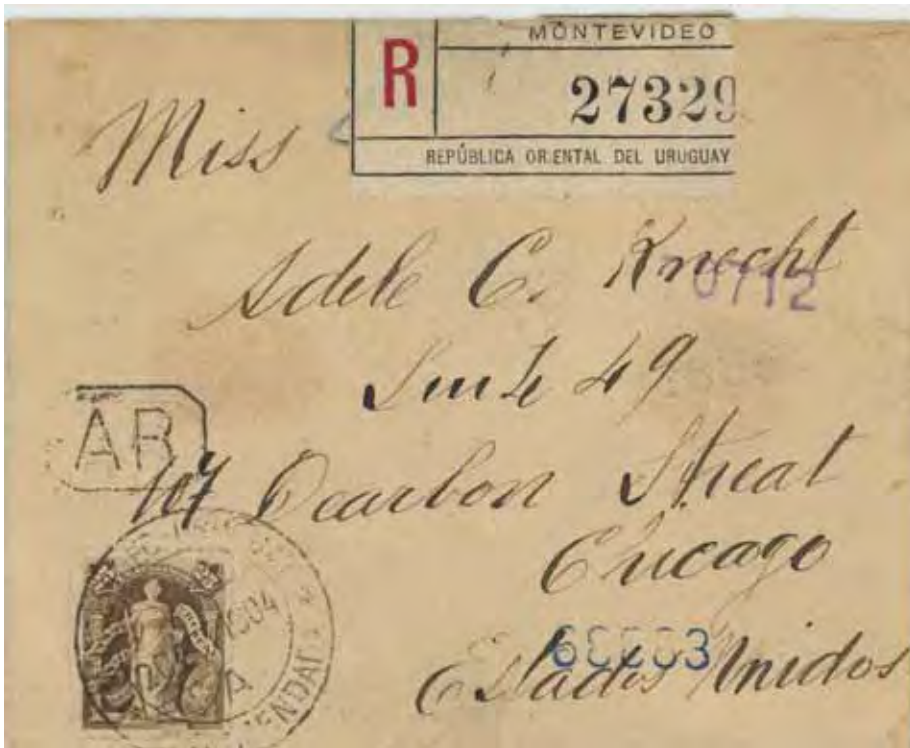 MONTEVIDEO
R 27329
REPÚBLICA ORIENTAL DEL URUGUAY
Miss
Adele C. Knecht
0712
Suite 49
AR
107 Dearbon Streat
Chicago
1904
60003
Estados Unidos
A